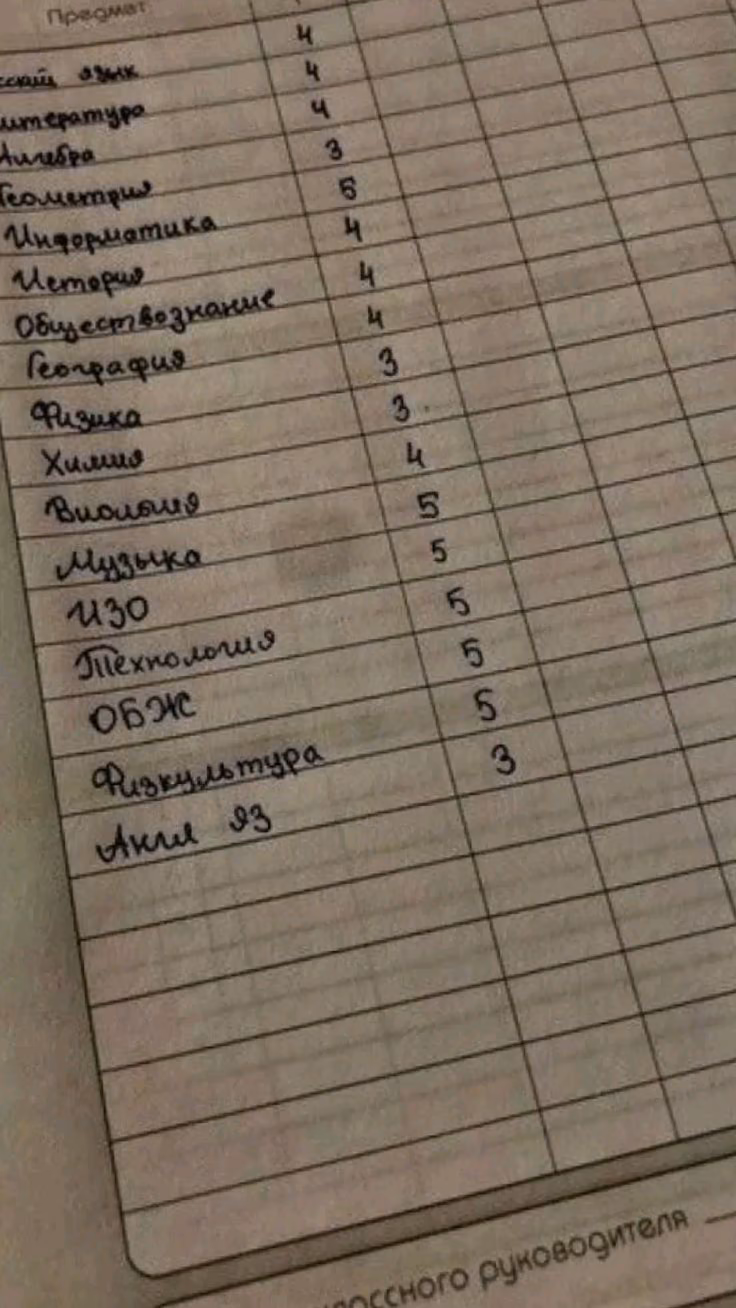 Предмет
сский язык 4
итература 4
Алгебра 4
Геометрия 3
Информатика 5
История 4
Обществознание 4
География 4
Физика 3
Химия 3
Биология 4
Музыка 5
ИЗО 5
Технология 5
ОБЖ 5
Физкультура 5
Англ яз 3
лассного руководителя